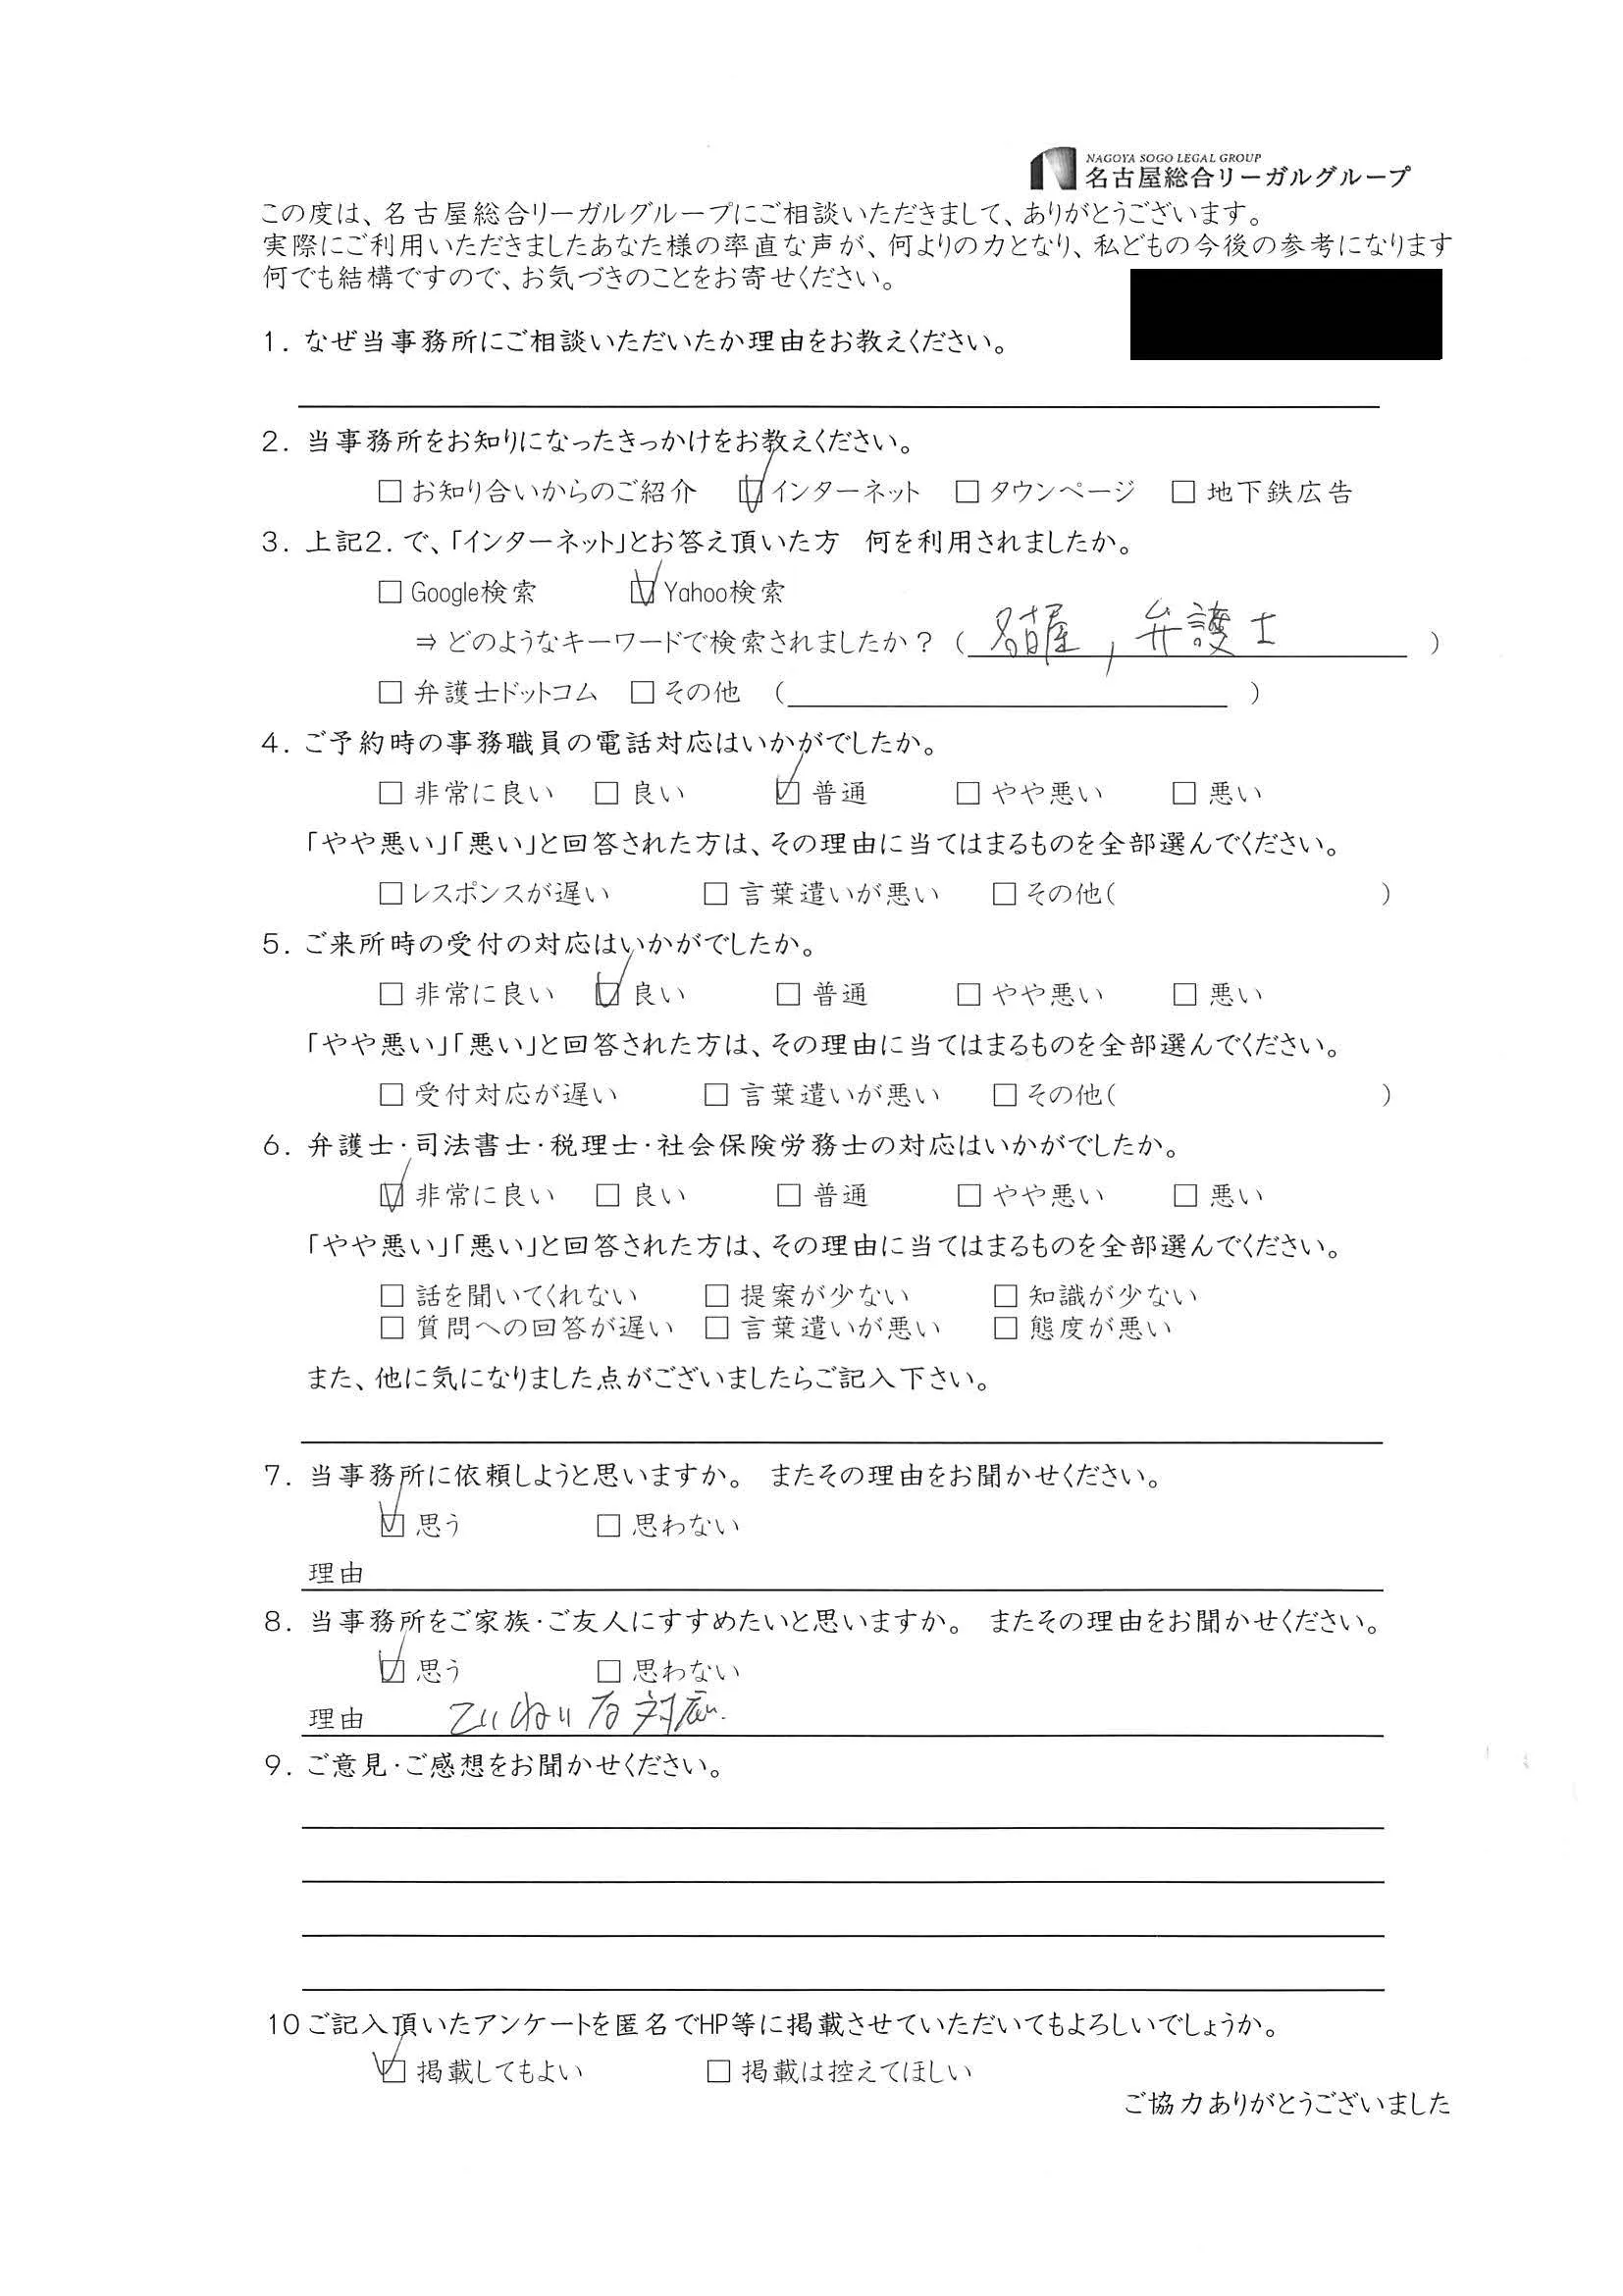 NAGOYA SOGO LEGAL GROUP
名古屋総合リーガルグループ
この度は、名古屋総合リーガルグループにご相談いただきまして、ありがとうございます。
実際にご利用いただきましたあなた様の率直な声が、何よりの力となり、私どもの今後の参考になります
何でも結構ですので、お気づきのことをお寄せください。
1. なぜ当事務所にご相談いただいたか理由をお教えください。
2. 当事務所をお知りになったきっかけをお教えください。
□ お知り合いからのご紹介 ☑ インターネット □ タウンページ □ 地下鉄広告
3. 上記2. で、「インターネット」とお答え頂いた方 何を利用されましたか。
□ Google検索 ☑ Yahoo検索
⇒ どのようなキーワードで検索されましたか？ ( 名古屋 , 弁護士 )
□ 弁護士ドットコム □ その他 ( )
4. ご予約時の事務職員の電話対応はいかがでしたか。
□ 非常に良い □ 良い ☑ 普通 □ やや悪い □ 悪い
「やや悪い」「悪い」と回答された方は、その理由に当てはまるものを全部選んでください。
□ レスポンスが遅い □ 言葉遣いが悪い □ その他( )
5. ご来所時の受付の対応はいかがでしたか。
□ 非常に良い ☑ 良い □ 普通 □ やや悪い □ 悪い
「やや悪い」「悪い」と回答された方は、その理由に当てはまるものを全部選んでください。
□ 受付対応が遅い □ 言葉遣いが悪い □ その他( )
6. 弁護士・司法書士・税理士・社会保険労務士の対応はいかがでしたか。
☑ 非常に良い □ 良い □ 普通 □ やや悪い □ 悪い
「やや悪い」「悪い」と回答された方は、その理由に当てはまるものを全部選んでください。
□ 話を聞いてくれない □ 提案が少ない □ 知識が少ない
□ 質問への回答が遅い □ 言葉遣いが悪い □ 態度が悪い
また、他に気になりました点がございましたらご記入下さい。
7. 当事務所に依頼しようと思いますか。 またその理由をお聞かせください。
☑ 思う □ 思わない
理由
8. 当事務所をご家族・ご友人にすすめたいと思いますか。 またその理由をお聞かせください。
☑ 思う □ 思わない
理由 ていねいな対応.
9. ご意見・ご感想をお聞かせください。
10 ご記入頂いたアンケートを匿名でHP等に掲載させていただいてもよろしいでしょうか。
☑ 掲載してもよい □ 掲載は控えてほしい
ご協力ありがとうございました